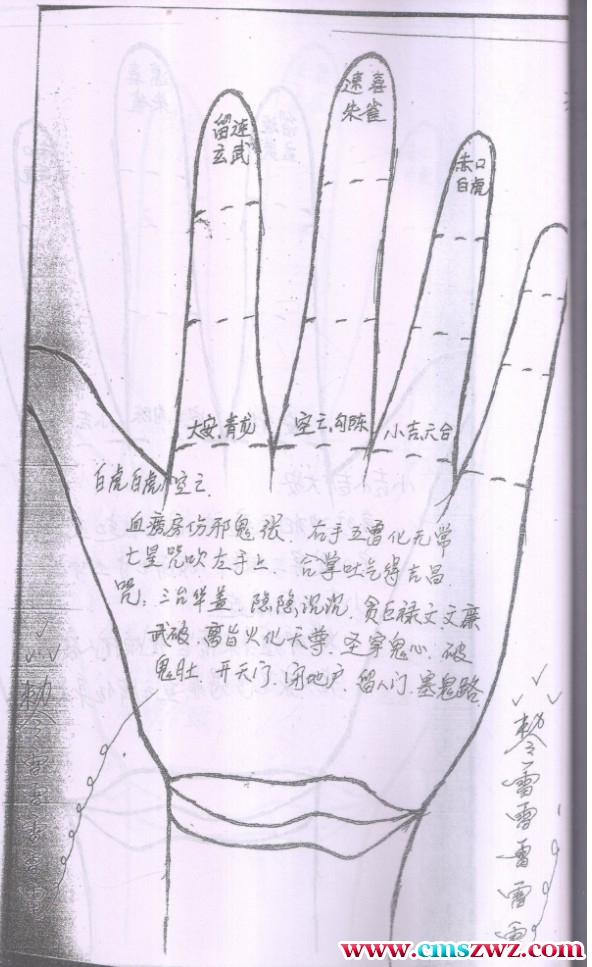 留连
玄武
速喜
朱雀
赤口
白虎
大安、青龙
空亡、勾陈
小吉、六合
白虎白虎空亡
血疾房伤邪鬼张、右手五雷化无常
七星咒吹左手上、合掌吐气得吉昌
咒：三台华盖、隐隐沉沉、贪巨禄文文廉
武破、离旨火化天尊、圣穿鬼心、破
鬼肚、开天门、闭地户、留人门、塞鬼路
敕令
雷
雷
雷
雷
雷
www.cmszwz.com